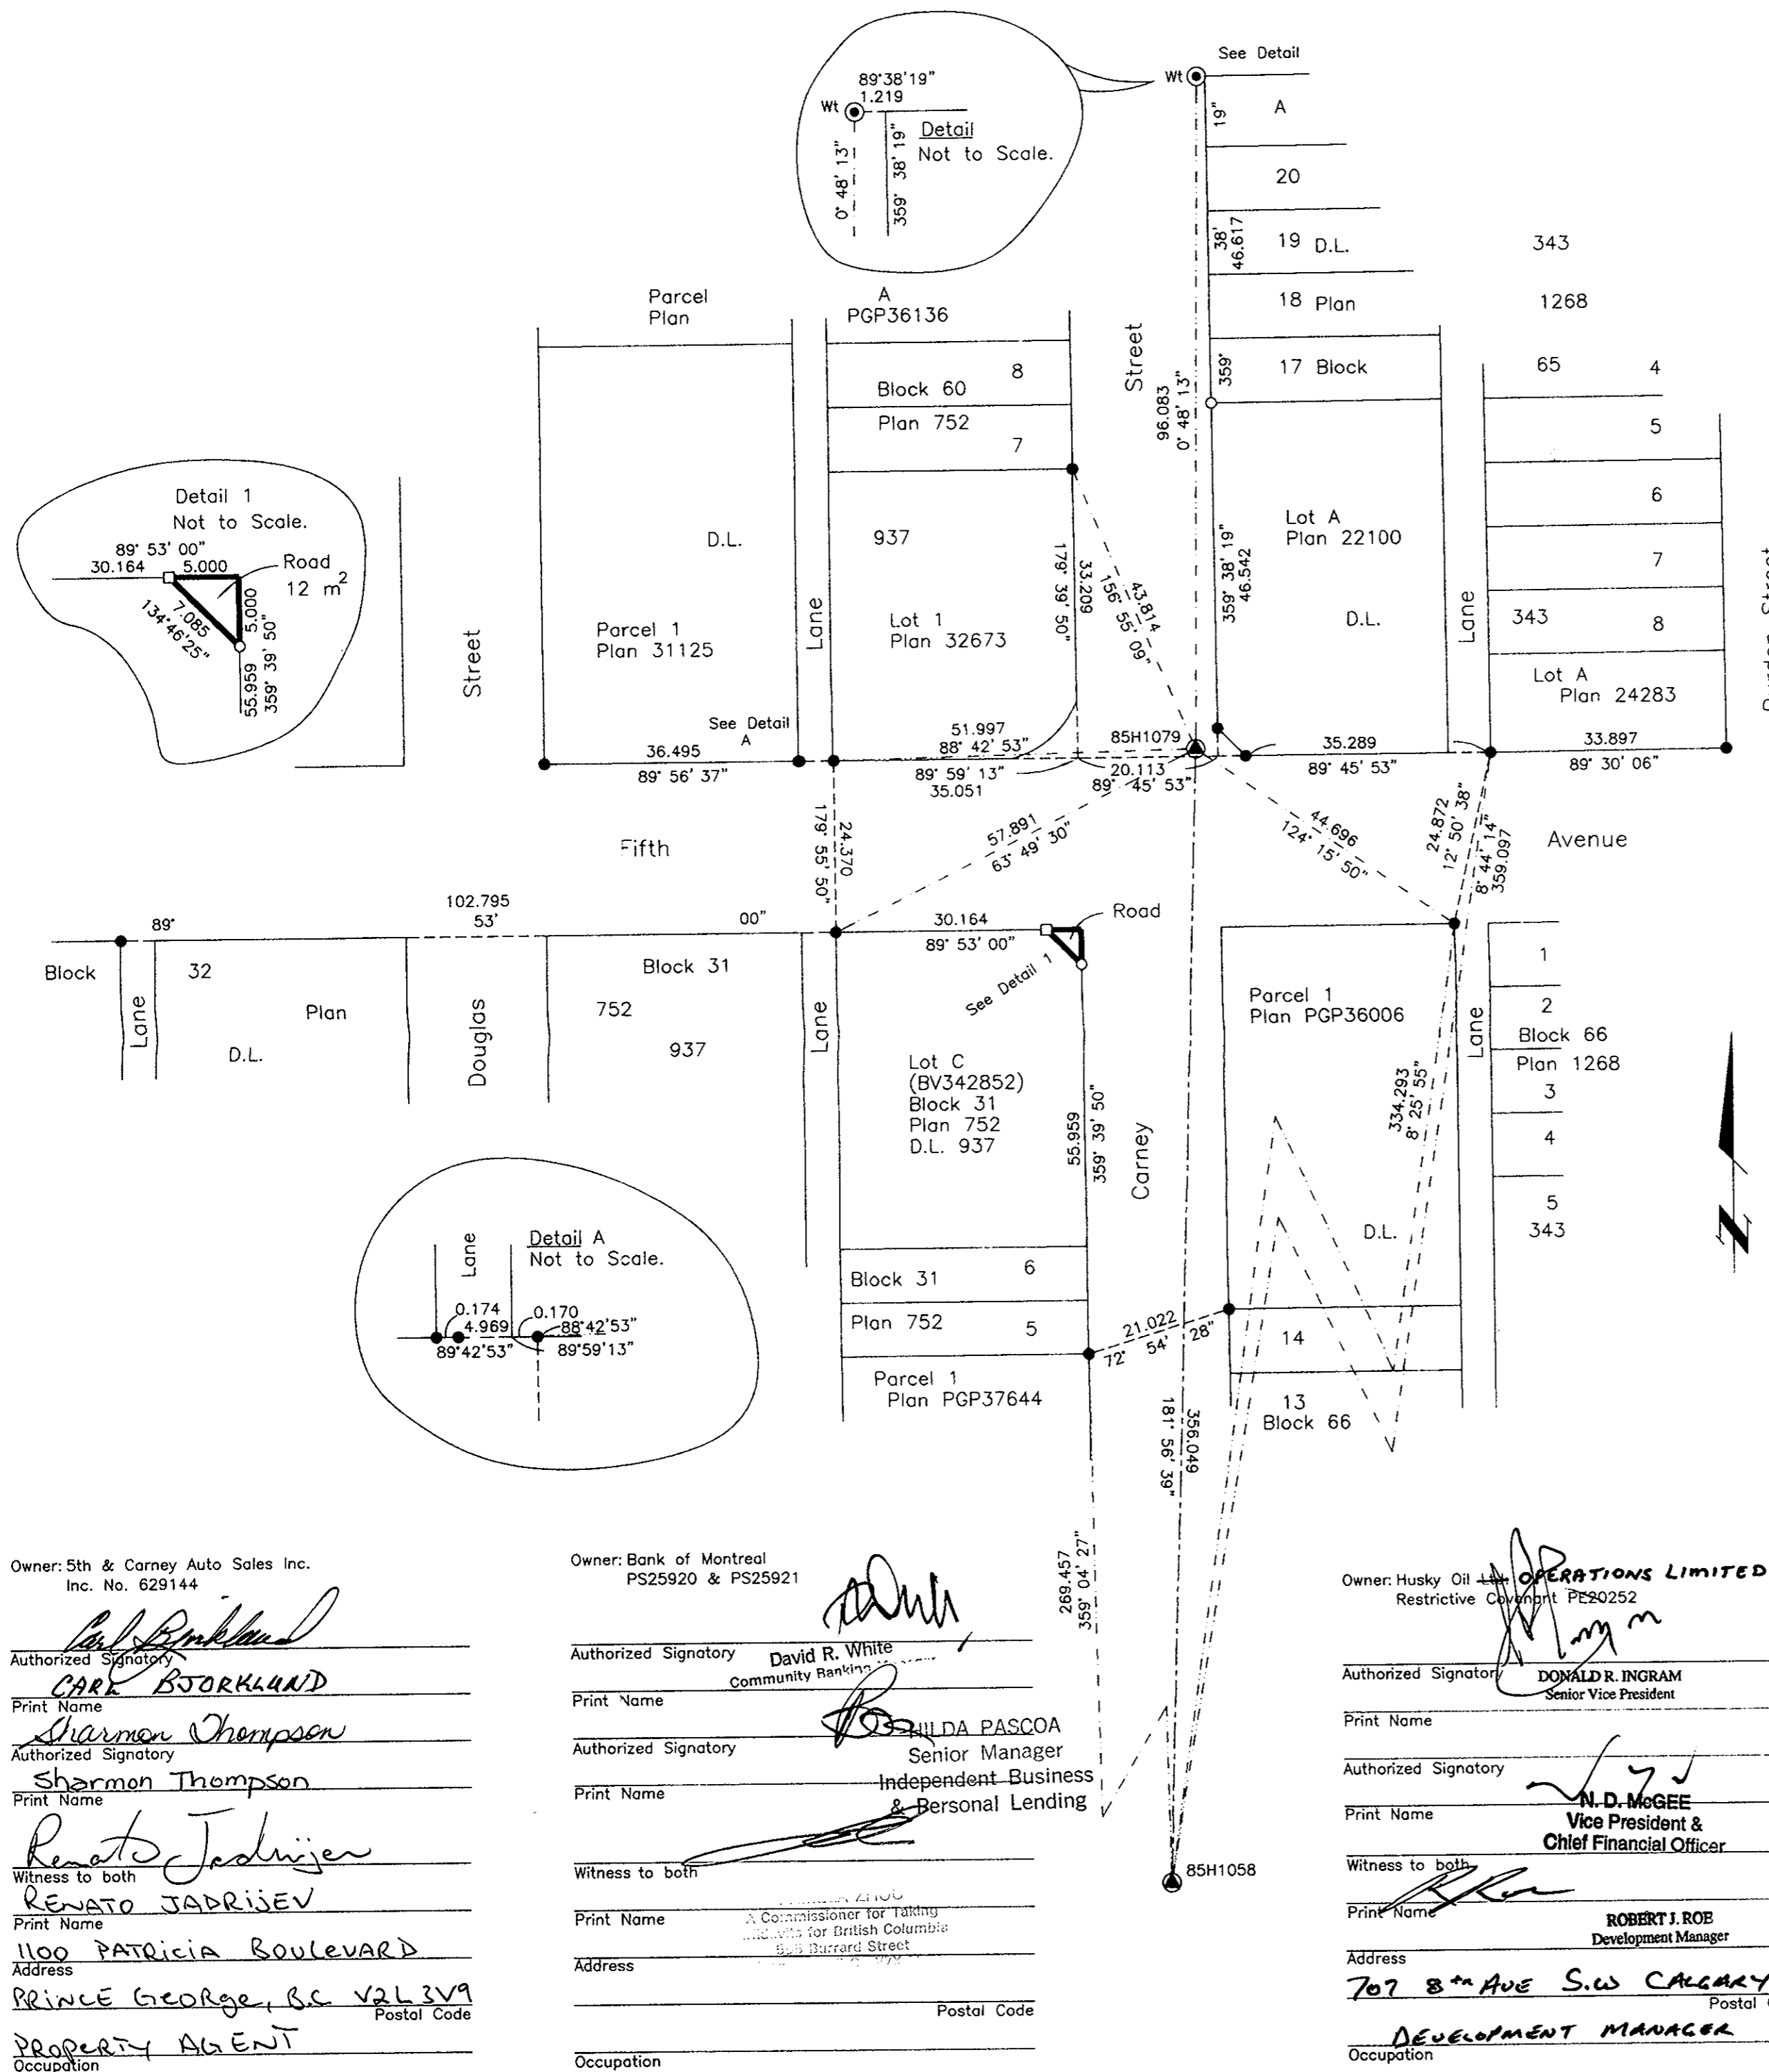 See Detail
Wt
89°38'19"
1.219
Wt
Detail
Not to Scale.
0° 48' 13"
359° 38' 19"
19"
A
20
38'
46.617
19 D.L. 343
18 Plan 1268
359°
17 Block 65 4
5
6
7
343 8
Lot A
Plan 24283
Parcel A
Plan PGP36136
8
Block 60
Plan 752
7
Street
96.083
0° 48' 13"
Detail 1
Not to Scale.
89° 53' 00"
30.164 5.000
Road
12 m²
7.085
134°46'25"
5.000
55.959
359° 39' 50"
Street
D.L. 937
Parcel 1
Plan 31125
Lane
Lot 1
Plan 32673
33.209
179° 39' 50"
43.814
156° 55' 09"
359° 38' 19"
46.542
Lot A
Plan 22100
D.L.
Lane
Street
See Detail
A
36.495
89° 56' 37"
51.997
88° 42' 53"
89° 59' 13"
35.051
85H1079
20.113
89° 45' 53"
35.289
89° 45' 53"
33.897
89° 30' 06"
Fifth
Avenue
24.370
179° 55' 50"
57.891
63° 49' 30"
44.696
124° 15' 50"
24.872
12° 50' 38"
8° 44' 14"
359.097
102.795
89° 53' 00"
30.164
89° 53' 00"
Road
See Detail 1
Block 32
Lane
Plan
D.L.
Douglas
Block 31
752
937
Lane
Lot C
(BV342852)
Block 31
Plan 752
D.L. 937
55.959
359° 39' 50"
Carney
Parcel 1
Plan PGP36006
D.L.
334.293
8° 25' 55"
Lane
1
2
Block 66
Plan 1268
3
4
5
343
N
Detail A
Not to Scale.
Lane
0.174
4.969
0.170
88°42'53"
89°42'53"
89°59'13"
Block 31 6
Plan 752 5
Parcel 1
Plan PGP37644
21.022
72° 54' 28"
14
13
Block 66
356.049
181° 56' 39"
269.457
359° 04' 27"
85H1058
Owner: 5th & Carney Auto Sales Inc.
Inc. No. 629144
Carl Bjorklund
Authorized Signatory
CARL BJORKLUND
Print Name
Sharmon Thompson
Authorized Signatory
Sharmon Thompson
Print Name
Renato Jadrijev
Witness to both
RENATO JADRIJEV
Print Name
1100 PATRICIA BOULEVARD
Address
PRINCE GEORGE, B.C. V2L 3V9
Postal Code
PROPERTY AGENT
Occupation
Owner: Bank of Montreal
PS25920 & PS25921
Authorized Signatory
David R. White
Community Banking
Print Name
HILDA PASCOA
Authorized Signatory
Senior Manager
Independent Business
Print Name
& Personal Lending
Witness to both
ZHOU
Print Name
A Commissioner for Taking
for British Columbia
Burrard Street
Address
Postal Code
Occupation
Owner: Husky Oil Ltd. OPERATIONS LIMITED
Restrictive Covenant PE20252
Authorized Signatory
DONALD R. INGRAM
Senior Vice President
Print Name
Authorized Signatory
N. D. McGEE
Print Name
Vice President &
Chief Financial Officer
Witness to both
Print Name
ROBERT J. ROE
Development Manager
Address
707 8th AVE S.W CALGARY
Postal
DEVELOPMENT MANAGER
Occupation